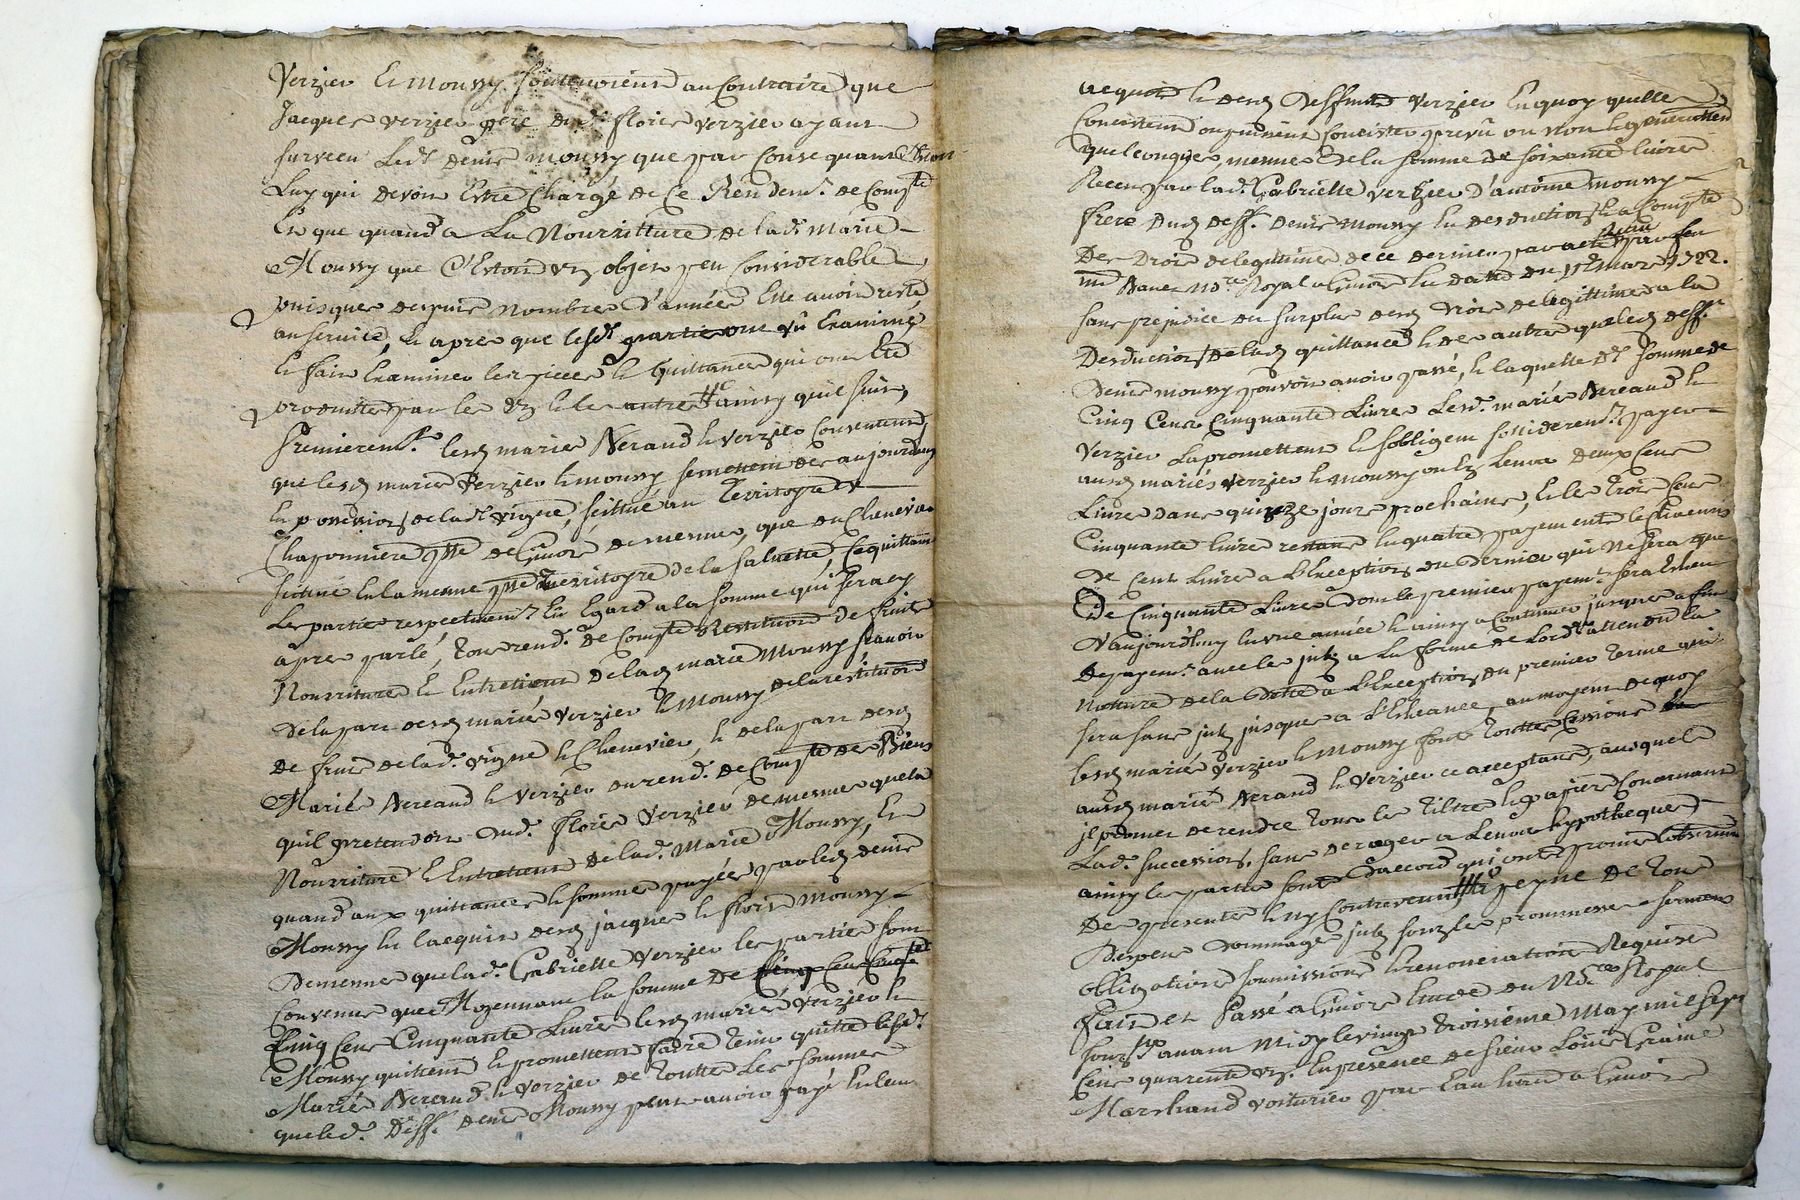 Verzier & Moussy soutenoient au Contraire que
Jacques Verzier pere dud. florie Verzier ayant
survecu Led. Denis moussy que par Consequant C'estoit
Luy qui devoit Estre Chargé de Ce Rendemt. de Compte
Et que quand a La Nourriture de lad. Marie
Moussy que C'Estoit un objet peu Considerable,
puisque depuis nombres d'année Elle avoit resté
au service, & apres que lesd. parties ont vû Examiné
& fait Examiner les pieces & Quittances qui ont Eté
produittes par les uns & les autres ainsy quil suit,
Premieremt. lesd. mariés Neraud & Verzier Consentent
que lesd. mariés Verzier & moussy se mettent des aujourdhuy
En possession de lad. vigne, scittué au Territoyre
Chaponniere psse de Givors de mesme, que du Chenevier
scittué En la mesme psse Territoyre de la saluette, se quittant
Les parties respectivemt. Eu Egard a la somme qui sera cy
apres parlé, tout rend. de Compte Restitution de fruits
Nourriture & Entretient de lad. marie Moussy scavoir
de la part desd. mariés Verzier & Moussy de la restitution
De fruits de lad. vigne & Chenevier, & de la part desd.
Mariés Neraud & Verzier du rend. de Compte des Biens
quil pretendoit dud. florie Verzier de mesme que la
Nourriture & Entretient de lad. Marie Moussy, Et
quand aux quittances & sommes payées par led. denis
Moussy En l'acquit desd. jacques & florie Moussy
de mesme que lad. Gabrielle Verzier les parties sont
Convenus que Moyennant la somme de
Cinq Cent Cinquante Livres lesd. mariés Verzier &
Moussy quittent & promettent faire tenir quitte lesd.
Mariés Neraud & Verzier de toutte Les sommes
que led. Deff. denis Moussy peut avoir payé En leur
acquit & desd. deffunts Verzier En quoy quelle
Consistent ou puissent Consister prevû ou non & generallement
quelconque, mesme de la somme de soixante livres
Receu par lad. Gabrielle Verzier d'antoine moussy
frere dud. deff. denis Moussy En desduction & a Compte
Des Droits de legitime de ce dernier par acte receu par feu
Me Banet nore Royal a Givors En datte du 15e mars 1722.
sans prejudice du surplus desd. droits de legittime a la
Desduction de lad. quittance & des autres que led. deff.
Denis moussy pouvoit avoir passé, & laquelle d. somme de
Cinq Cent Cinquante Livres Lesd. mariés Neraud &
Verzier La promettent & s'obligent sollideremt. payer
ausd. mariés Verzier & Moussy ou Es Leurs deux Cent
Livres dans quinze jours prochains, & les trois Cent
Cinquante livres restans En quatre payements & Chacuns
De Cent Livres a L'Exception du dernier qui ne sera que
De Cinquante Livres dont le premier payemt. sera Echeu
D'aujourd'huy En une année & ainsy a Continuer jusques a fin
de payemt. avec les jnts a La forme de Lordce attendu la
Natture de la dette a L'Exception du premier terme qui
sera sans jnts jusques a L'Echeance, au moyen de quoy
lesd. mariés Verzier & Moussy font toutte Cessions
ausd. mariés Neraud & Verzier ce acceptans, ausquels
jls promet de rendre tous les tiltres & papiers Concernans
Lad. succession, sans deroger a Leurs hypotheques
ainsy les parties sont d'accord qui ont promis observer
Ces presentes & ny Contrevenir a peyne de tous
despens dommages jnts sous les promesses & serments
obligations soumissions & renonciations Requises
Fait et Passé a Givors Etude du Nore Royal
sousne avant Midy le vingt troisieme May mil sept
Cent quarente un. En presence de sieur Louis Graine
Marchand voiturier par Eau habt a Givors